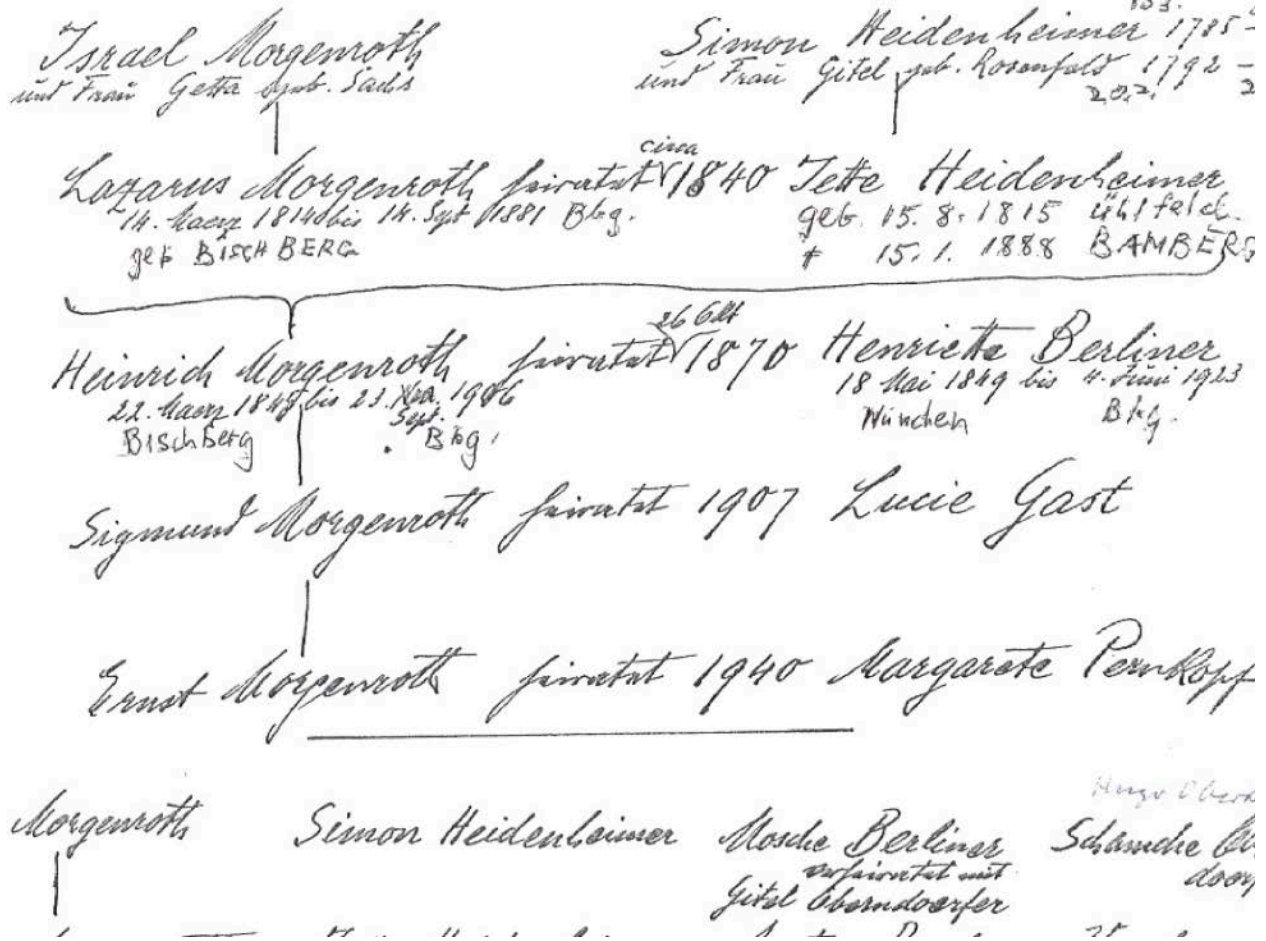 Israel Morgenroth
und Frau Getta geb. Sachs
Simon Heidenheimer 1785 -
und Frau Gitel geb. Rosenfeld 1792 -
20.2.
circa
Lazarus Morgenroth heiratet 1840 Jette Heidenheimer
14. Maerz 1814 bis 14. Sept 1881 Bbg.
geb. 15. 8. 1815 Ühlfeld.
geb BISCHBERG
† 15. 1. 1888 BAMBERG
26 Okt
Heinrich Morgenroth heiratet 1870 Henrietta Berliner
22. Maerz 1848 bis 23. 1906
18 Mai 1849 bis 4. Juni 1923
Sept.
Bischberg
Bbg.
München
Bbg.
Sigmund Morgenroth heiratet 1907 Lucie Gast
Ernst Morgenroth heiratet 1940 Margarete Pernkopf
Hugo
Morgenroth
Simon Heidenheimer
Mosche Berliner
verheiratet mit
Gitel Oberndoerfer
Schamche